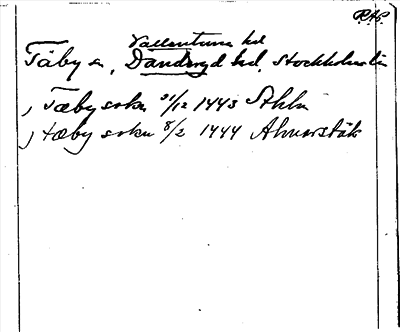 RAP.
Vallentuna hd
Täby sn, Danderyd hd, Stockholms län
j Tæby sokn 21/12 1443 Sthlm
j tæby sokn 8/2 1444 Almarstäk